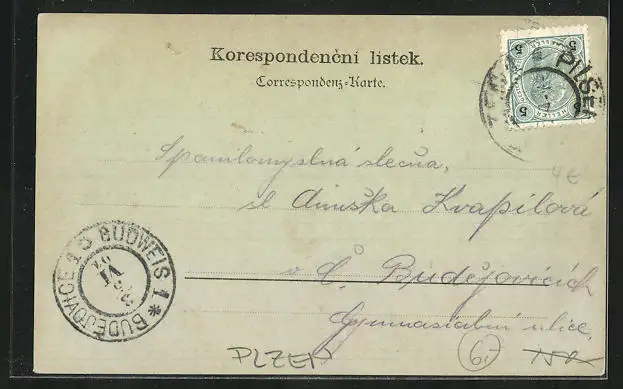 Korespondenční lístek.
Correspondenz-Karte.
PILSEN
5 5
Spanilomyslná slečna,
4€
sl Aninška Kvapilová
v Č. Budějovicích
Gymnasialní ulice
BUDĚJOVICE 1 BUDWEIS 1 *
VI
PLZEŇ
6